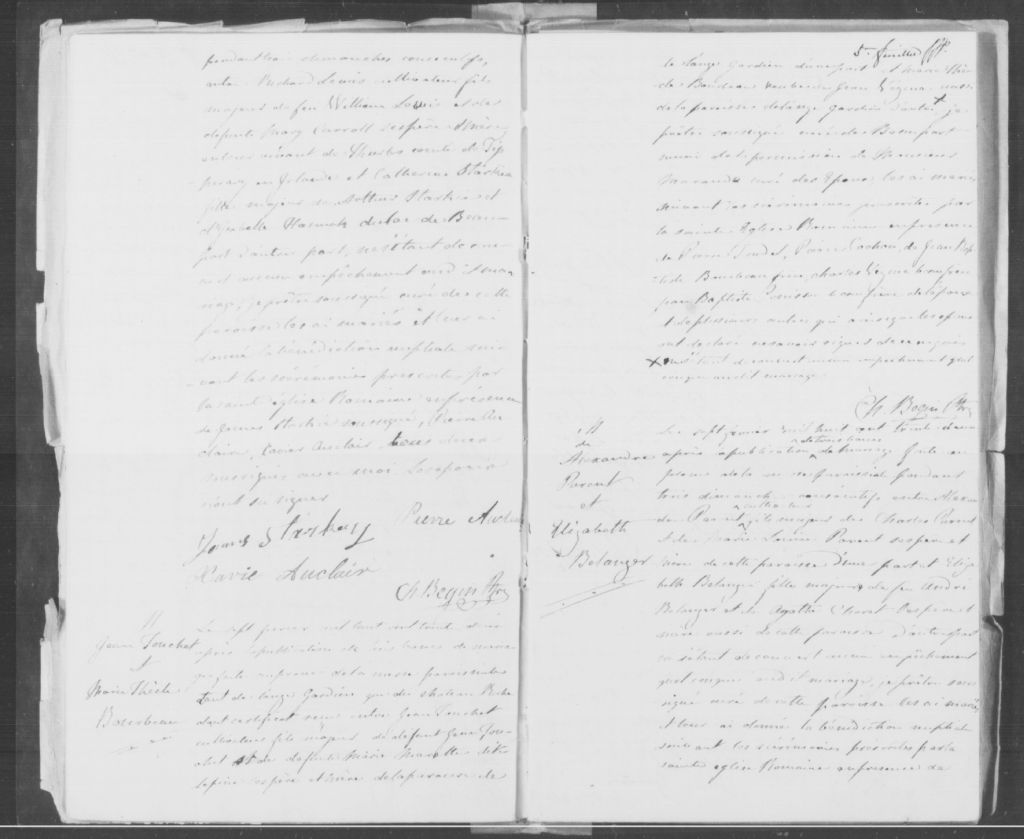 pendant trois dimanches consecutifs,
entre Richard Lewis cultivateur fils
majeur de feu William Lewis et de
defunte Mary Carroll ses père & mère
de Thurles comté de Tip
perary en Irlande et Catherine Starkey
fille majeure de Arthur Starkey et
d'Isabelle du lac de Beau-
port d'autre part, ne s'étant decou-
vert aucun empêchement au dit ma-
riage, je prêtre soussigné curé de cette
paroisse les ai mariés et leur ai
donné la bénédiction nuptiale suiv-
vant les cérémonies prescrites par
la sainte église Romaine en présence
de James Starkey soussigné, Pierre Au
clair, Xavier Auclair tous deux
soussignés avec moi Les époux
n'ont su signer
James Starkey Pierre Auclair
Xavié Auclair
Ch. Begin Ptre
M
Jean Touchet
et
Marie Thècle
Bourbeau
Le sept janvier mil huit cent trente deux
après la publication de trois bans de mariage
faite au prone de la messe paroissiale
tant de l'ange Gardien que du chateau Riche
dont certificat entre Jean Touchet
cultivateur fils majeur de defunt Jean Tou-
chet et de defunte Marie Marette dite
Lepine ses père et mère de la paroisse de
5e feuillet
de l'ange Gardien d'une part et Marie Thè-
cle Bourbeau veuve de Jean Vezina aussi
de la paroisse de l'ange Gardien d'autre + je
prêtre soussigné curé de Beauport
muni de la permission de Monsieur
curé des Epoux, les ai mariés
suivant les cérémonies prescrites par
la sainte Eglise Romaine en presence
de Pierre Trudel, Pierre Cochon de Jean Bap-
tiste Bourbeau frere, charles Vezina beaufrere
Jean Baptiste beaufrère de l'époux
et de plusieurs autres qui ainsi que les époux
ont déclaré ne savoir signer de ce enquis
+ ne s'étant decouvert aucun empechement quel
conque au dit mariage
Ch. Begin Ptre
M
de
Alexandre
Parent
et
Elizabeth
Belanger
Le sept janvier mil huit cent trente deux
après la publication de trois bans de mariage faite au
prone de la messe paroissiale pendant
trois dimanches consécutifs entre Alexan
dre Parent cultivateur fils majeur de Charles Parent
et de Marie Louise Parent ses père et
mère de cette paroisse d'une part et Eliza
beth Belanger fille majeure de feu André
Belanger et de Agathe Choret ses père et
mère aussi de cette paroisse d'autre part
ne s'étant decouvert aucun empêchement
quelconque au dit mariage, je prêtre sous
signé curé de cette paroisse les ai mariés
et leur ai donné la bénédiction nuptiale
suivant les cérémonies prescrites par la
sainte église Romaine en presence de